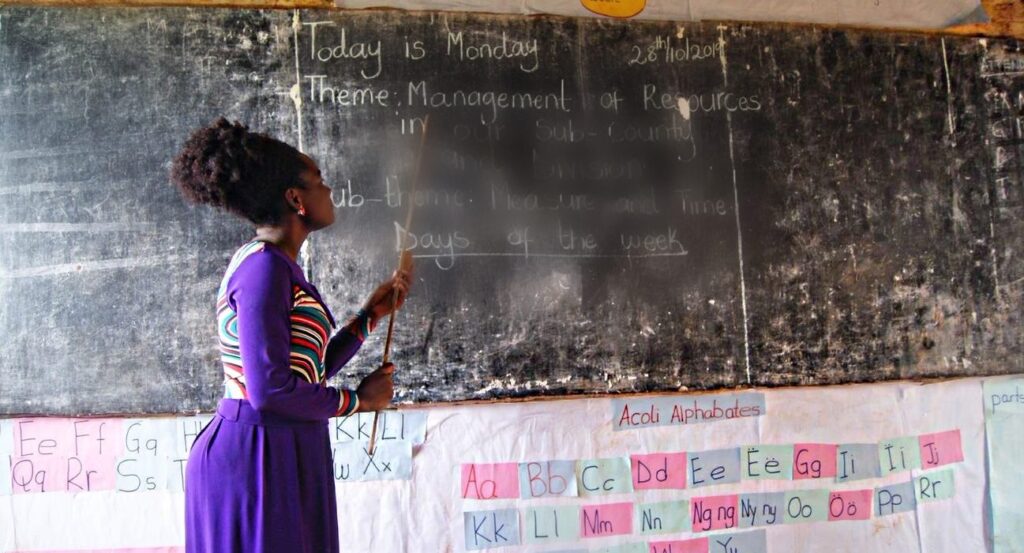 Today is Monday 28th/10/2019
Theme: Management of Resources
in our Sub-County
and Division
Sub-theme: Measure and Time.
Days of the week
Acoli Alphabates
parts
Ee Ff Gg H Kk Ll
Qq Rr Ss T w Xx
Aa Bb Cc Dd Ee Ëë Gg Ii Ïï Jj
Kk Ll Mm Nn Ng ng Ny ny Oo Öö Pp Rr